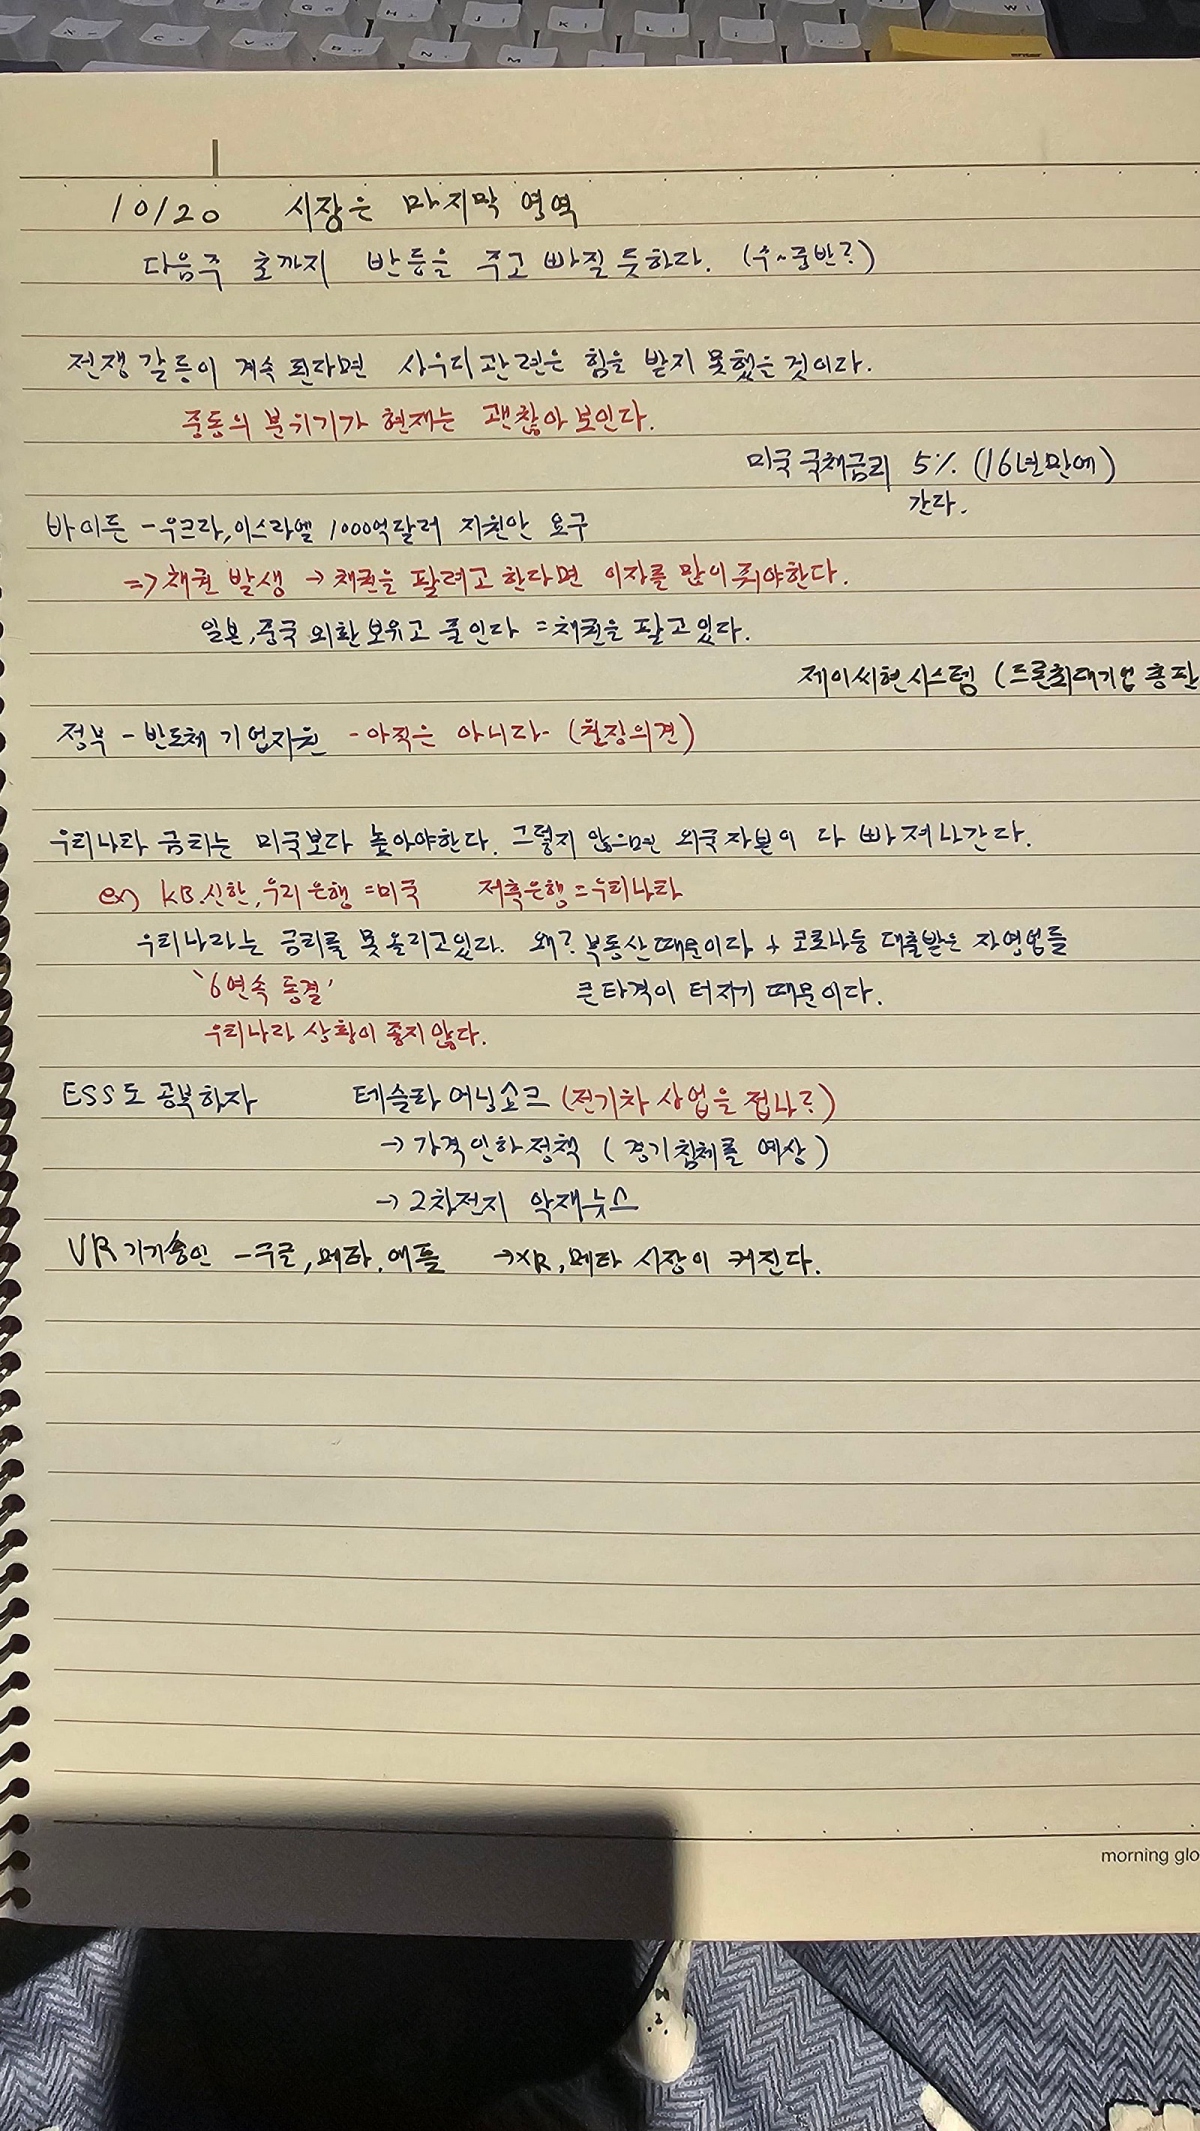 10/20 시장은 마지막 영역
다음주 초까지 반등을 주고 빠질 듯하다. (수~중반?)
전쟁 갈등이 계속 된다면 사우디 관련은 힘을 받지 못했을 것이다.
중동의 분위기가 현재는 괜찮아 보인다.
미국 국채금리 5% (16년만에)
간다.
바이든 - 우크라, 이스라엘 1000억달러 지원안 요구
=> 채권 발생 → 채권을 팔려고 한다면 이자를 많이 줘야한다.
일본, 중국 외환보유고 줄인다 = 채권을 팔고있다.
제이씨현시스템 (드론최대기업 총판
정부 - 반도체 기업지원 - 아직은 아니다- (원장의견)
우리나라 금리는 미국보다 높아야한다. 그렇지 않으면 외국자본이 다 빠져나간다.
ex) KB.신한, 우리은행 = 미국 저축은행 = 우리나라
우리나라는 금리를 못 올리고있다. 왜? 부동산때문이다 + 코로나등 대출받은 자영업들
'6연속 동결' 큰타격이 터지기 때문이다.
우리나라 상황이 좋지않다.
ESS도 공부하자 테슬라 어닝쇼크 (전기차 사업을 접나?)
→ 가격인하정책 (경기침체를 예상)
→ 2차전지 악재뉴스
VR기기승인 - 구글, 메타, 애플 → XR, 메타 시장이 커진다.
morning glo